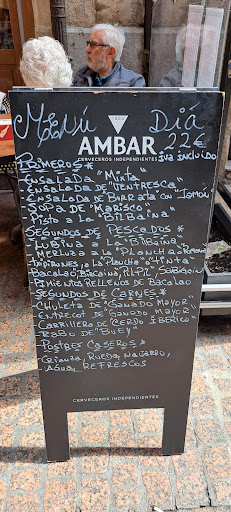 AMBAR
CERVECEROS INDEPENDIENTES
MENÚ Día
22€
iva incluido
PRIMEROS*
-ENSALADA "Mixta"
-ENSALADA DE "VENTRESCA"
-ENSALADA DE BURRATA "con" JAMÓN
-SOPA DE "MARISCO"
-PISTO A LA "BILBAINA"
SEGUNDOS DE PESCADOS *
-LUBINA A LA "BILBAINA"
-MERLUZA A LA "PLANCHA o ROMANA
"A LA PLANCHA" o "TINTA"
BACALAO: BIZCAINA, PILPIL
-PIMIENTOS RELLENOS DE BACALAO
SEGUNDOS DE CARNES*
-CHULETA DE "GANADO MAYOR"
-ENTRECOT DE "GANADO MAYOR"
-CARRILLERA DE CERDO IBÉRICO
-RABO DE "BUEY"
POSTRES CASEROS *
CRIANZA, RUEDA, NAVARRO,
AGUA, REFRESCOS
CERVECEROS INDEPENDIENTES